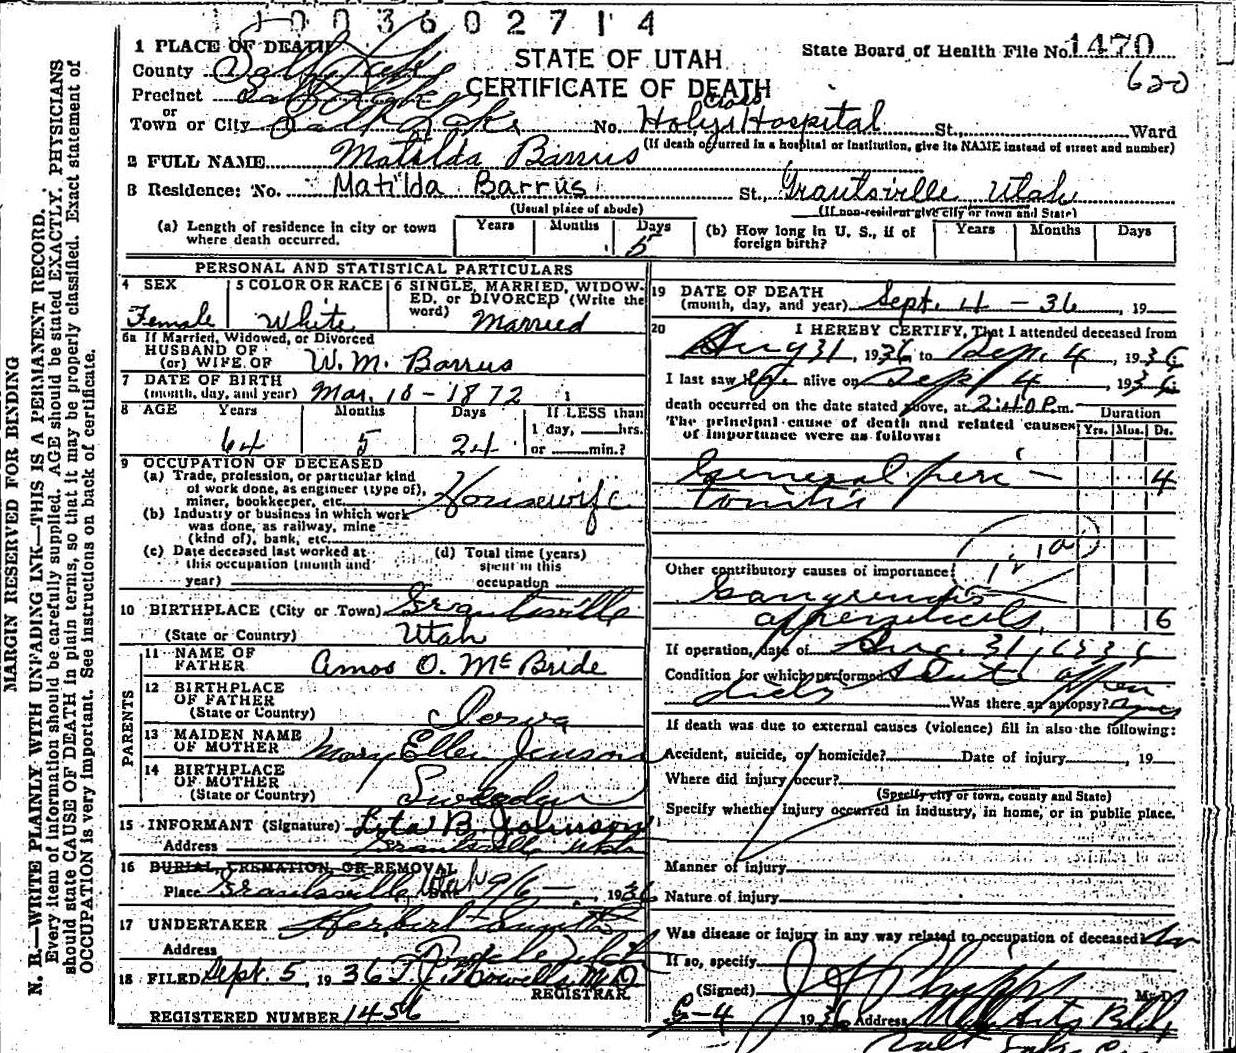 1003602714
1 PLACE OF DEATH
STATE OF UTAH
State Board of Health File No. 1470
County Salt Lake
CERTIFICATE OF DEATH
620
Precinct Salt Lake
or
Town or City Salt Lake No. Holy Cross Hospital St., Ward
(If death occurred in a hospital or institution, give its NAME instead of street and number)
2 FULL NAME Matilda Barrus
3 Residence: No. Matilda Barrus St., Grantsville Utah
(Usual place of abode) (If non-resident give city or town and State)
(a) Length of residence in city or town where death occurred. Years Months Days 5
(b) How long in U. S., if of foreign birth? Years Months Days
PERSONAL AND STATISTICAL PARTICULARS
4 SEX Female
5 COLOR OR RACE White
6 SINGLE, MARRIED, WIDOWED, or DIVORCED (Write the word) Married
6a If Married, Widowed, or Divorced
HUSBAND OF
(or) WIFE OF W. M. Barrus
7 DATE OF BIRTH
(month, day, and year) Mar. 10 - 1872
8 AGE Years Months Days If LESS than
1 day, hrs.
64 5 24 or min.?
9 OCCUPATION OF DECEASED
(a) Trade, profession, or particular kind
of work done, as engineer (type of),
miner, bookkeeper, etc. Housewife
(b) Industry or business in which work
was done, as railway, mine
(kind of), bank, etc.
(c) Date deceased last worked at
this occupation (month and
year)
(d) Total time (years)
spent in this
occupation
10 BIRTHPLACE (City or Town) Grantsville
(State or Country) Utah
PARENTS
11 NAME OF
FATHER Amos O. McBride
12 BIRTHPLACE
OF FATHER
(State or Country) Iowa
13 MAIDEN NAME
OF MOTHER Mary Ellen Jenson
14 BIRTHPLACE
OF MOTHER
(State or Country) Sweeden
15 INFORMANT (Signature) Lyta B. Johnson
Address Grantsville Utah
16 BURIAL, CREMATION, OR REMOVAL
Place Grantsville, Utah Date 9/6 — 1936
17 UNDERTAKER Herbert
Address
18 FILED Sept. 5, 1936 T. J. Howells M.D.
REGISTRAR.
REGISTERED NUMBER 1456
19 DATE OF DEATH
(month, day, and year) Sept. 4 - 36, 19
20 I HEREBY CERTIFY, That I attended deceased from
Aug 31, 1936 to Sep. 4, 1936
I last saw her alive on Sept 4, 1936
death occurred on the date stated above, at 2:40 P. m.
Duration
The principal cause of death and related causes
of importance were as follows: Yrs. Mos. Ds.
General peri - 4
tonitis
Other contributory causes of importance:
Gangrenous
appendicitis, 6
If operation, date of Aug. 31, 1936
Condition for which performed Acute appen
dicitis Was there an autopsy? no
If death was due to external causes (violence) fill in also the following:
Accident, suicide, or homicide? Date of injury, 19
Where did injury occur?
(Specify city or town, county and State)
Specify whether injury occurred in industry, in home, or in public place.
Manner of injury
Nature of injury
Was disease or injury in any way related to occupation of deceased? No
If so, specify
(Signed) M. D.
9-4 1936 Address Med Arts Bldg
Salt Lake C
MARGIN RESERVED FOR BINDING
N. B.—WRITE PLAINLY WITH UNFADING INK—THIS IS A PERMANENT RECORD.
Every item of information should be carefully supplied. AGE should be stated EXACTLY. PHYSICIANS
should state CAUSE OF DEATH in plain terms, so that it may be properly classified. Exact statement of
OCCUPATION is very important. See instructions on back of certificate.